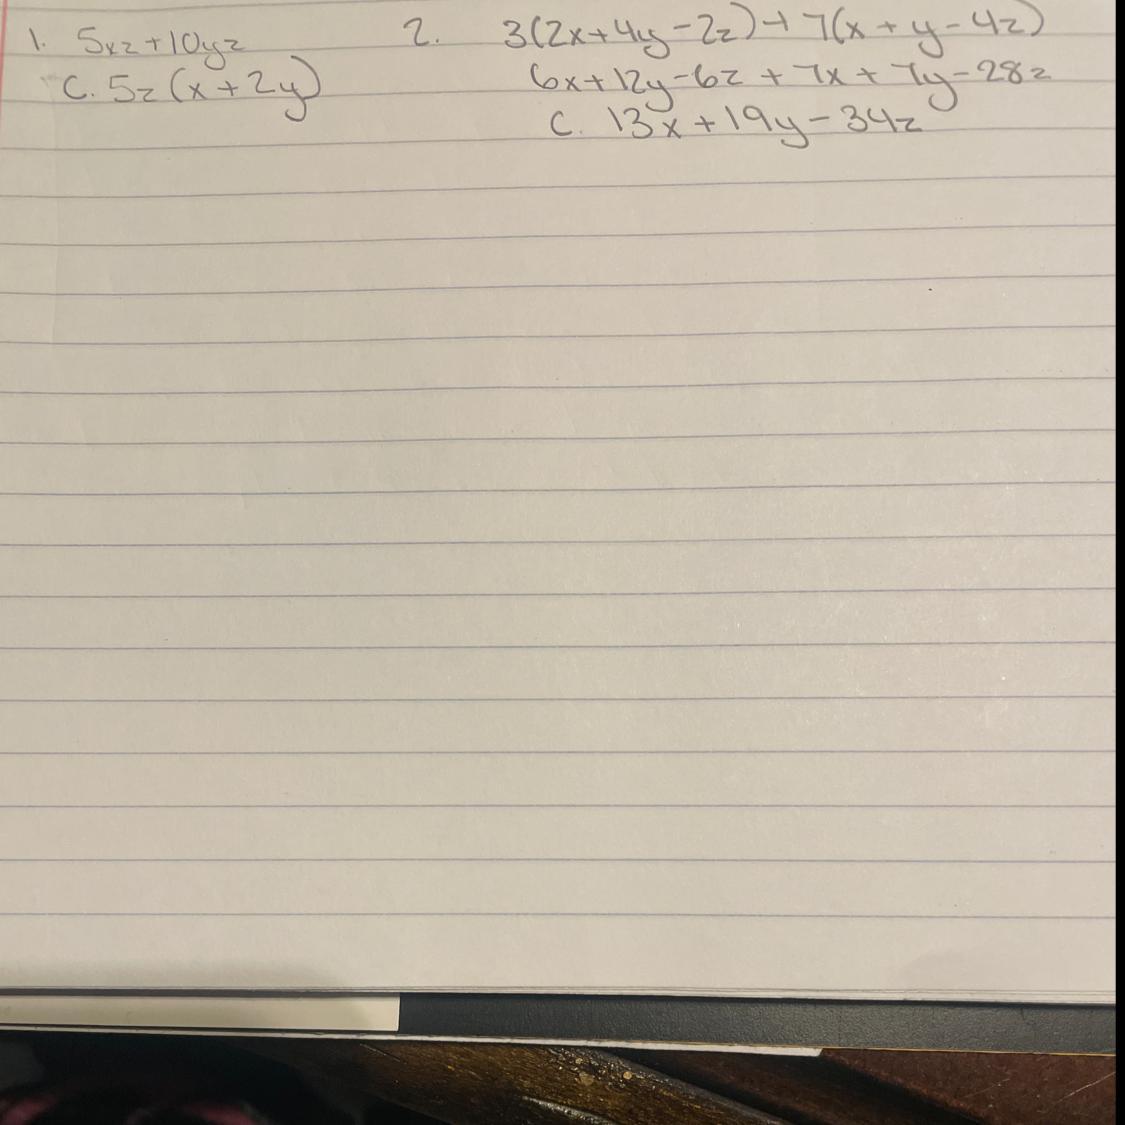 1. 5xz+10yz
C. 5z(x+2y)
2. 3(2x+4y-2z)+7(x+y-4z)
6x+12y-6z+7x+7y-28z
C. 13x+19y-34z